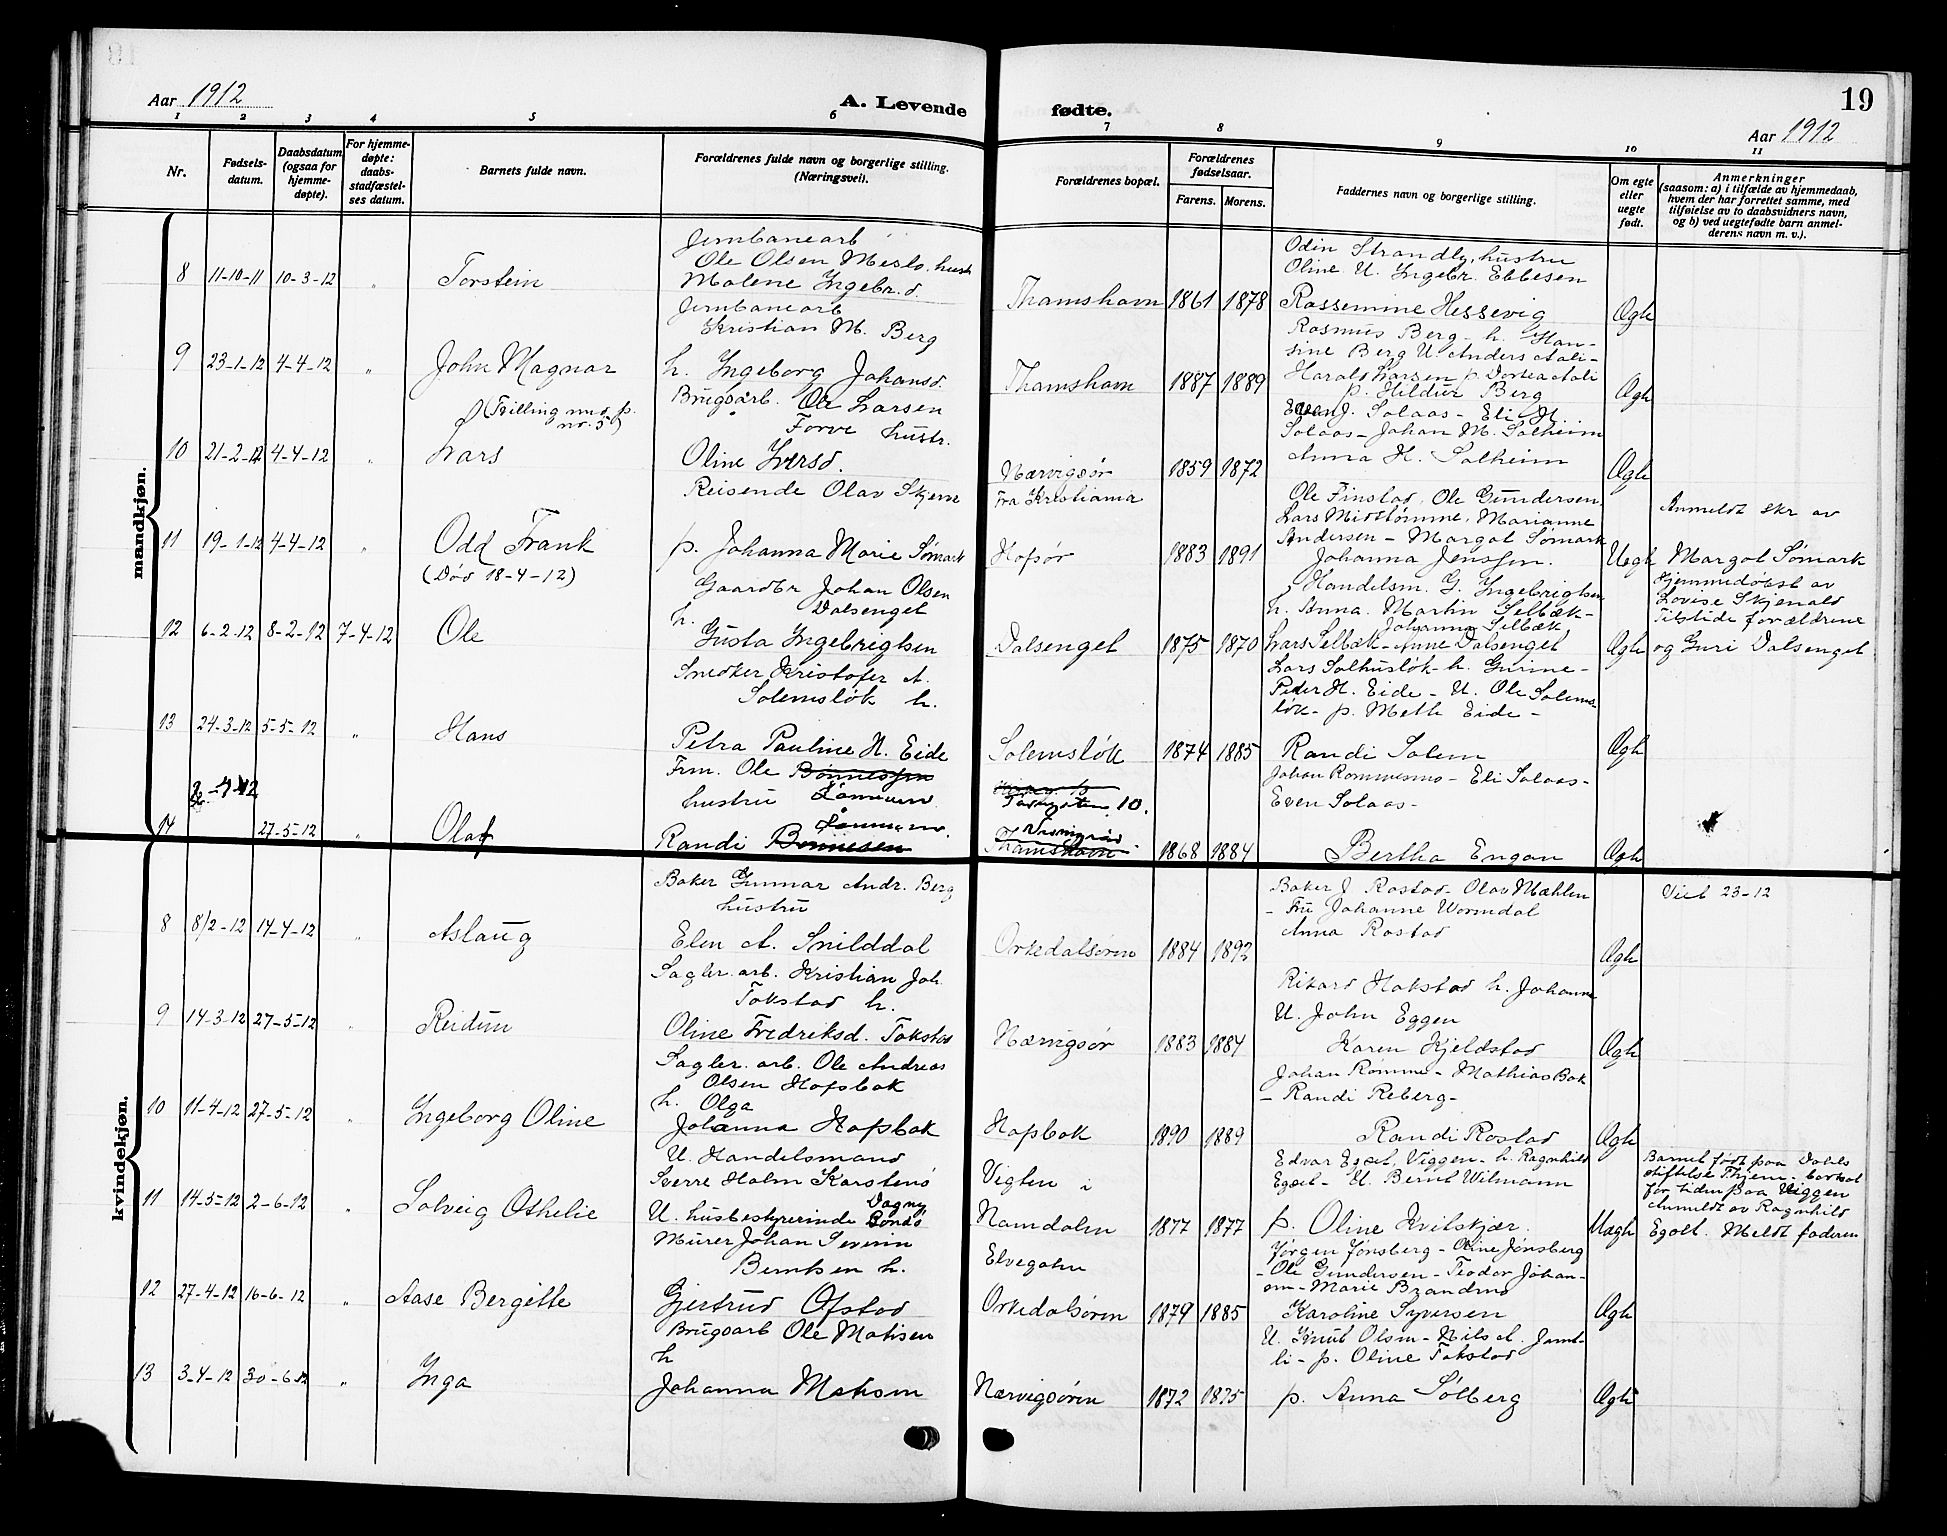 19
Aar 1912
A. Levende fødte.
Aar 1912
1 2 3 4 5 6 7 8 9 10 11
Nr.
Fødsels-
datum.
Daabsdatum
(ogsaa for
hjemme-
døpte).
For hjemme-
døpte:
daabs-
stadfæstel-
ses datum.
Barnets fulde navn.
Forældrenes fulde navn og borgerlige stilling.
(Næringsvei).
Forældrenes bopæl.
Forældrenes
fødselsaar.
Farens. Morens.
Faddernes navn og borgerlige stilling.
Om egte
eller
uegte
født.
Anmerkninger
(saasom: a) i tilfælde av hjemmedaab,
hvem der har forrettet samme, med
tilføielse av to daabsvidners navn,
og b) ved uegtefødte barn anmel-
derens navn m. v.).
mandkjøn.
8 11-10-11 10-3-12 " Torstein
Jernbanearb
Ole Olsen Meslo, hustr
Malene Ingebr.d.
Thamshavn 1861 1878
Odin Strandly, hustru
Oline U. Ingebr. Ebbesen
Rossemine Hessevig
Ægh
9 23-1-12 4-4-12 " John Magnar
Jernbanearb
Kristian M. Berg
h. Ingeborg Johansd.
Thamshavn 1887 1889
Rasmus Berg - h. Han-
sine Berg U. Anders Aali-
Harald Larsen p. Dortea Aali
p. Hildur Berg
Ægh
10 21-2-12 4-4-12 "
(Tvilling med p.
nr. 5)
Lars
Brugsarb. Ole Larsen
Forve hustr.
Oline Iversd.
Nærvigsør 1859 1872
Even J. Solaas - Eli H.
Solaas - Johan M. Solheim
Anna H. Solheim
Ægh
11 19-1-12 4-4-12 " Odd Frank
(Død 18-4-12)
Reisende Olav Skjerve
p. Johanna Marie Sømark
Fra Kristiania
Hofsør 1883 1891
Ole Finstad, Ole Gundersen,
Lars Midtlømme, Marianne
Andersen - Margot Sømark
Johanna Jenssen.
Uegh
Anmeldt skr av
Margot Sømark
12 6-2-12 8-2-12 7-4-12 Ole
Gaardbr Johan Olsen
h. Dalsenget
Gusta Ingebrigtsen
Dalsenget 1875 1870
Handelsm. G. Ingebrigtsen
h. Anna. Martin Selbæk-
Johanna Selbæk,
Lars Selbæk - Anne Dalsenget
Ægh
Hjemmedøbt av
Lovise Skjenald
Tilstede forældrene
og Guri Dalsenget
13 24-3-12 5-5-12 " Hans
Snedker Kristofer A.
Solemsløk h.
Petra Pauline H. Eide
Solemsløk 1874 1885
Lars Solhusløk - h. Gurine-
Peder H. Eide - U. Ole Solems-
løk - p. Meth Eide -
Randi Solem
Ægh
14 27-5-12 " Olaf
Frm. Ole Bonnessen
hustru
Randi Bonnesen
10.
Thamshavn 1868 1884
Johan Rommesmo - Eli Solaas -
Even Solaas -
Bertha Engan
Ægh
kvindekjøn.
8 8/2-12 14-4-12 " Aslaug
Baker Gunnar Andr. Berg
hustru
Elen A. Snilddal
Orkedalsøren 1884 1892
Baker J Rostad - Olav Mæhlen
- Fru Johanne Wormdal
Anna Rostad
Ægh
Viet 23-12
9 14-3-12 27-5-12 " Reidun
Sagbr. arb. Kristian Joh.
Tokstad h.
Oline Fredriksd. Tokstad
Nærvigsør 1883 1884
Rikard Hokstad h. Johanna
U. John Eggen
Karen Kjeldstad
Ægh
10 11-4-12 27-5-12 " Ingeborg Oline
Sagbr. arb. Ole Andreas
Olsen Hofsbak
h. Olga
Johanna Hofsbak
Hofsbak 1890 1889
Johan Romme - Mathias Bak
- Randi Reberg -
Randi Rostad
Ægh
11 14-5-12 2-6-12 " Solveig Othelie
U. Handelsmand
Sverre Holm Karstens
U. husbestyrerinde Dagny
Vigten i
Namdalen 1877 1877
Edvar Egset, Viggen - h. Ragnhild
Egset - U. Bernt Wilmann
p. Oline Kvilskjær.
Uægh
Barnet født paa Dahls
stiftelse Thjem - bortsat
for tiden paa Viggen
Anmeldt av Ragnhild
Egset. Meldt faderen
12 27-4-12 16-6-12 " Aase Bergitte
Murer Johan Severin
Berntsen h.
Gjertrud Ofstad
Elvegaten
Orkedalsøren 1879 1885
Jørgen Jønsberg - Oline Jønsberg
- Ole Gundersen - Teodor Johan-
sen - Marie Brandmo
Karoline Syversen
Ægh
13 3-4-12 30-6-12 " Inga
Brugsarb Ole Matisen
h
Johanna
Nærvigsøren 1872
U. Knut Olsen - Nils A. Jamt-
li - p. Oline Tokstad
p. Anna Solberg
Ægh